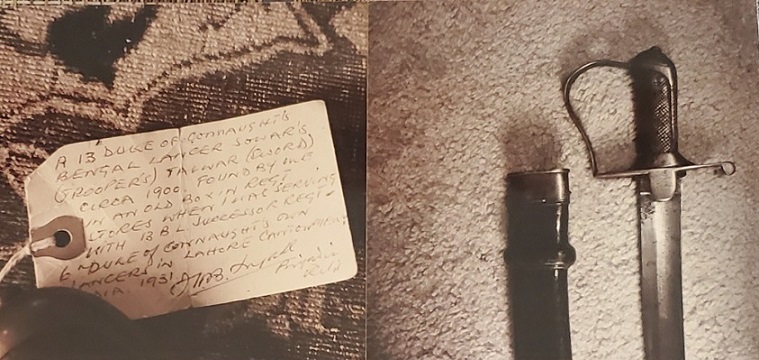 A 13 DUKE OF CONNAUGHT'S
BENGAL LANCER SOWAR'S
(TROOPER'S) TALWAR (SWORD)
CIRCA 1900. FOUND BY ME
IN AN OLD BOX IN REGT
STORES WHEN I WAS SERVING
WITH 13 B L SUCCESSOR REGT
6TH DUKE OF CONNAUGHT'S OWN
LANCERS IN LAHORE CANTONMENT
INDIA. 1931